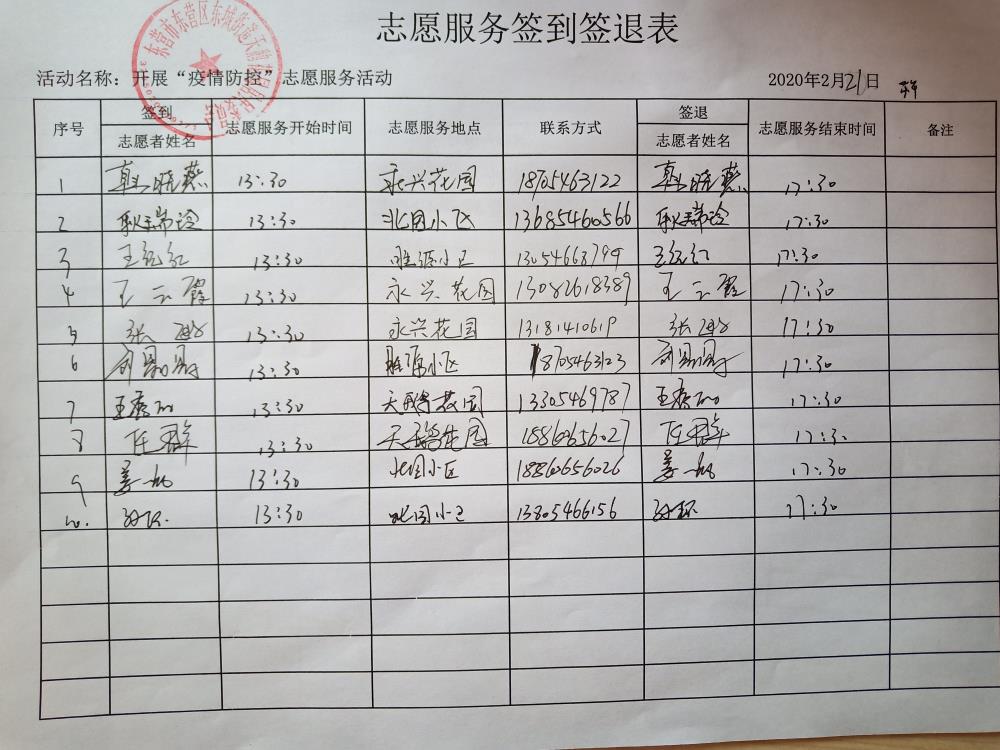 志愿服务签到签退表
活动名称：开展“疫情防控”志愿服务活动 2020年2月21日
序号 签到 志愿服务开始时间 志愿服务地点 联系方式 签退 志愿服务结束时间 备注
志愿者姓名 志愿者姓名
1 晓燕 13:30 永兴花园 18705463122 晓燕 17:30
2 耿瑞玲 13:30 北园小区 13685460566 耿瑞玲 17:30
3 王纪红 13:30 胜源小区 13054663799 王纪红 17:30
4 王云霞 13:30 永兴花园 13082618389 王云霞 17:30
5 张 13:30 永兴花园 13181410619 张 17:30
6 13:30 胜源小区 18705463123 17:30
7 王 13:30 天鹅花园 13305469787 王 17:30
8 任群 13:30 天鹅花园 18860656027 任群 17:30
9 姜 13:30 北园小区 18860656026 姜 17:30
10. 13:30 北园小区 13805466156 17:30